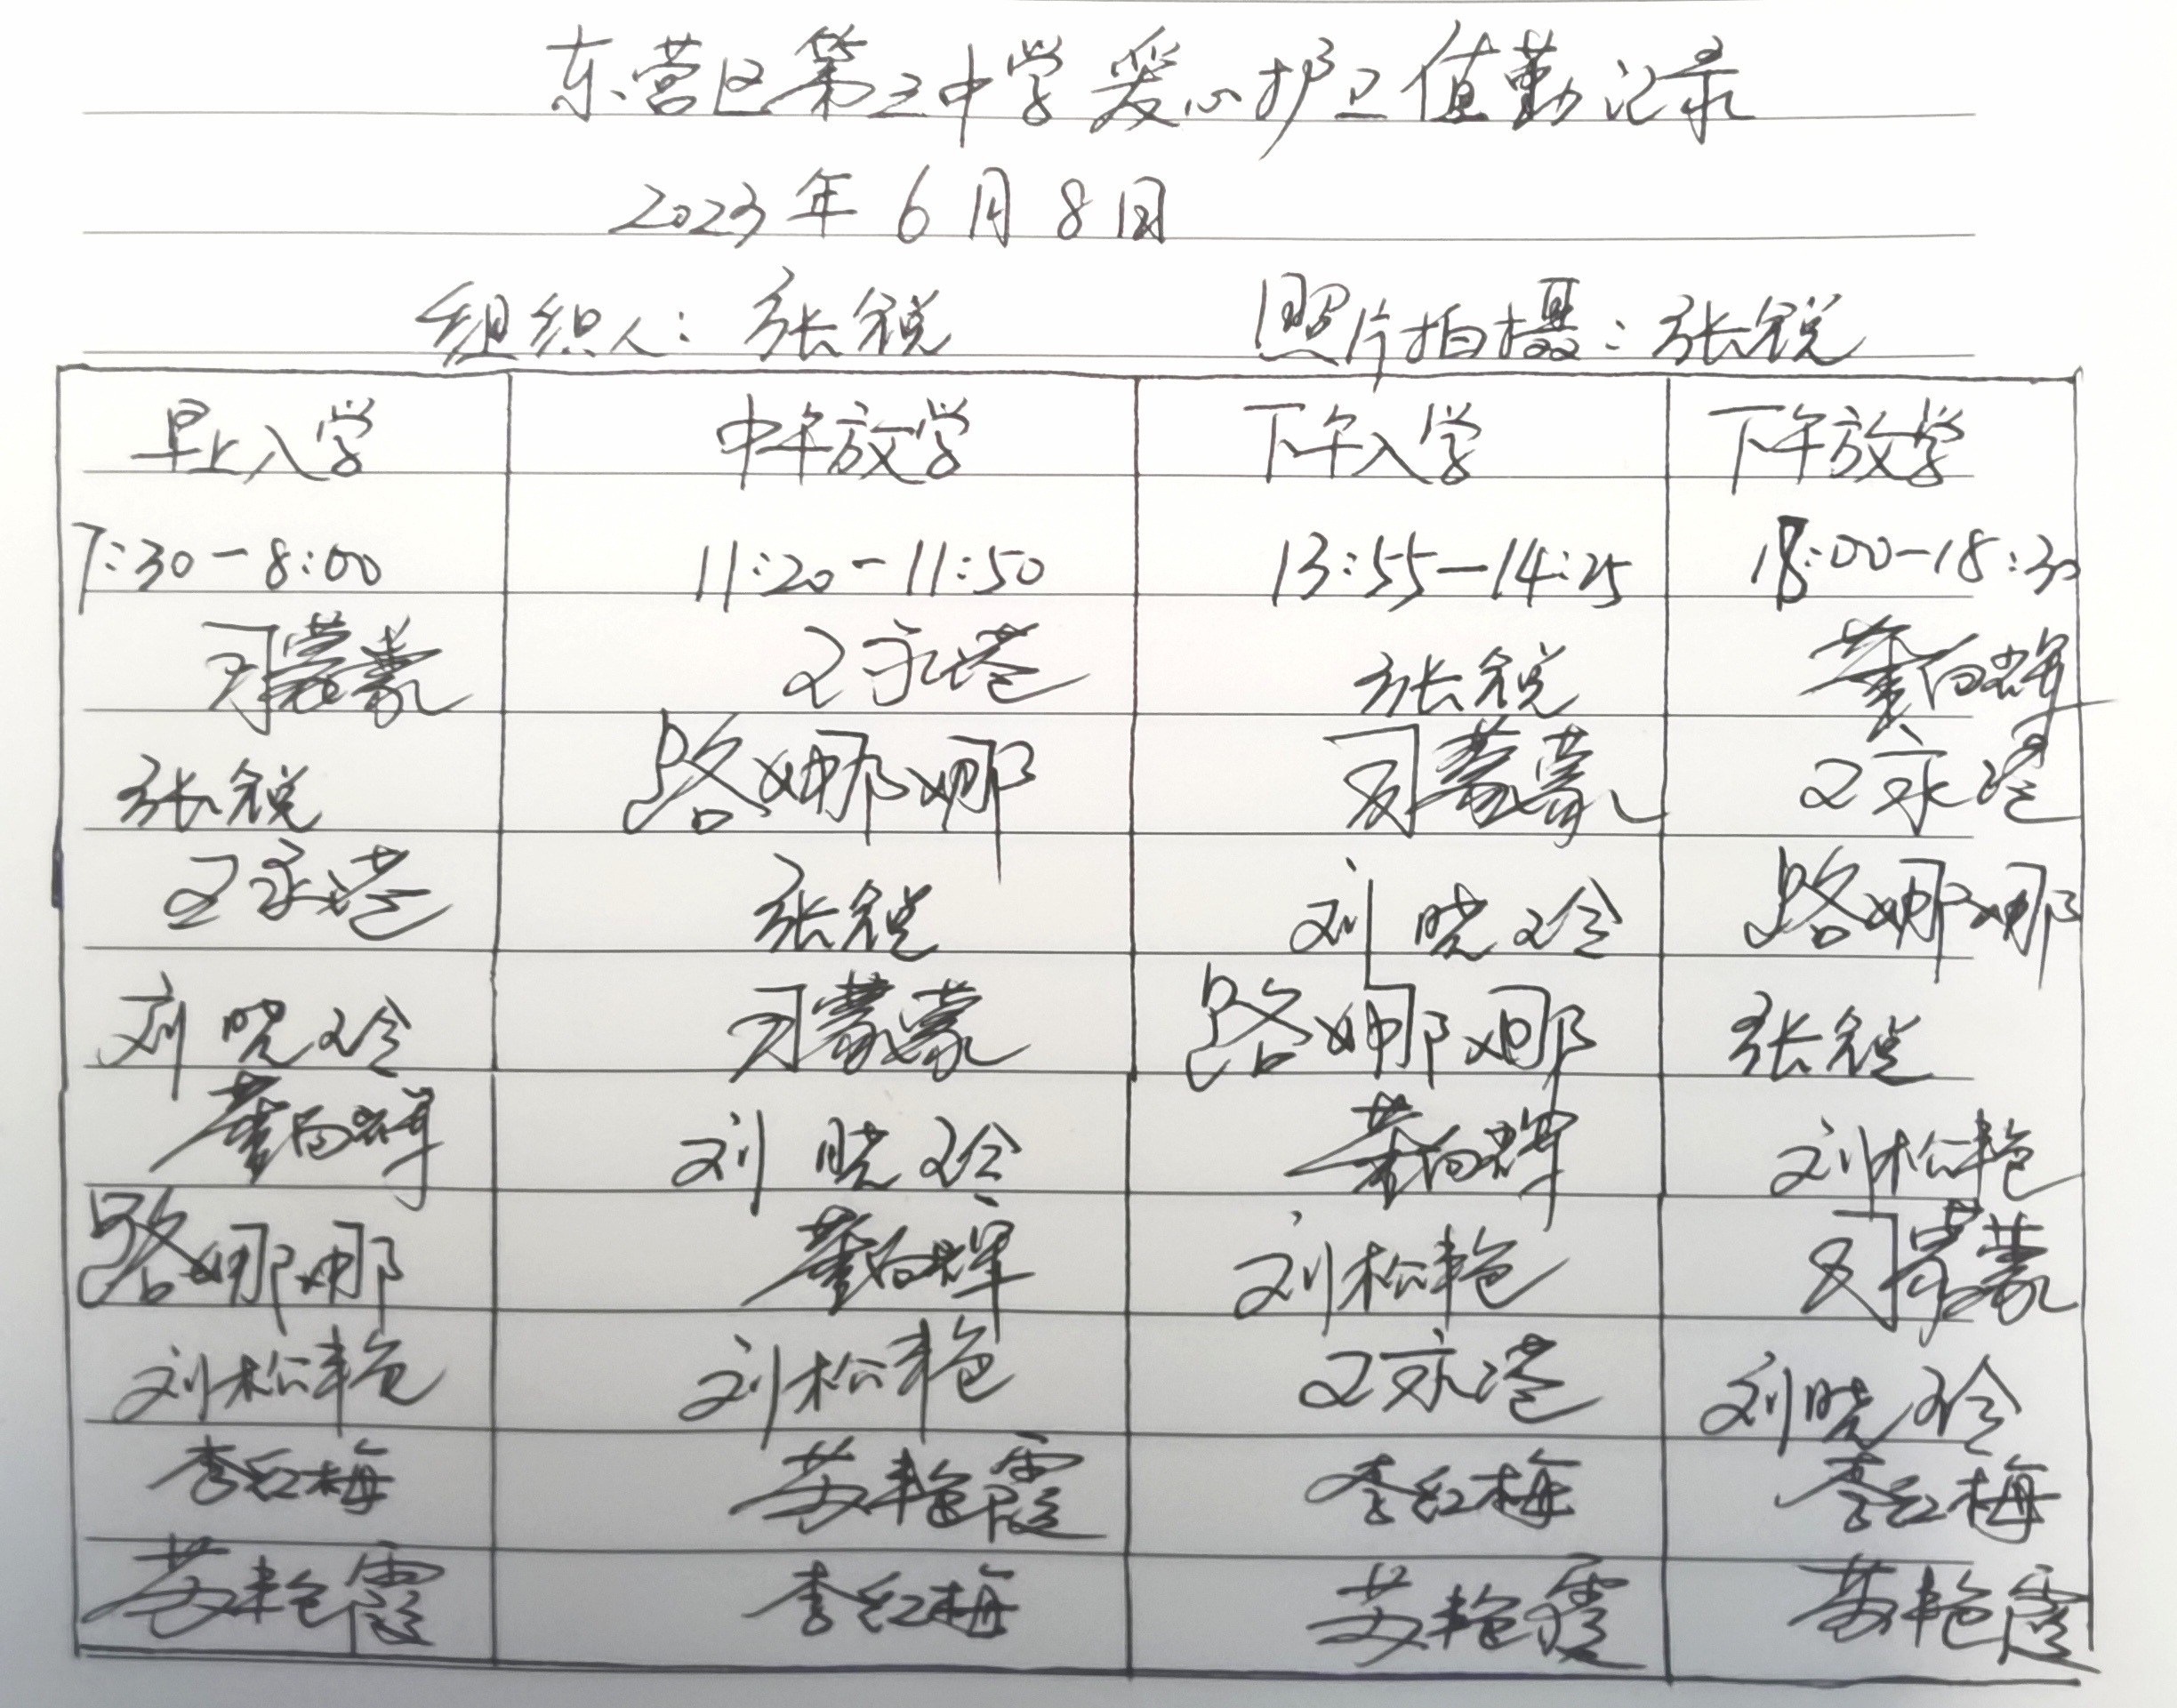 东营区第三中学爱心护卫值勤记录
2023年6月8日
组织人：张锐 照片拍摄：张锐
早上入学 中午放学 下午入学 下午放学
7:30-8:00 11:20-11:50 13:55-14:25 18:00-18:30
司蒙蒙 王永港 张锐 董向辉
张锐 路娜娜 司蒙蒙 王永港
王永港 张锐 刘晓玲 路娜娜
刘晓玲 司蒙蒙 路娜娜 张锐
董向辉 刘晓玲 董向辉 刘松艳
路娜娜 董向辉 刘松艳 司蒙蒙
刘松艳 刘松艳 王永港 刘晓玲
李红梅 苏艳霞 李红梅 李红梅
苏艳霞 李红梅 苏艳霞 苏艳霞